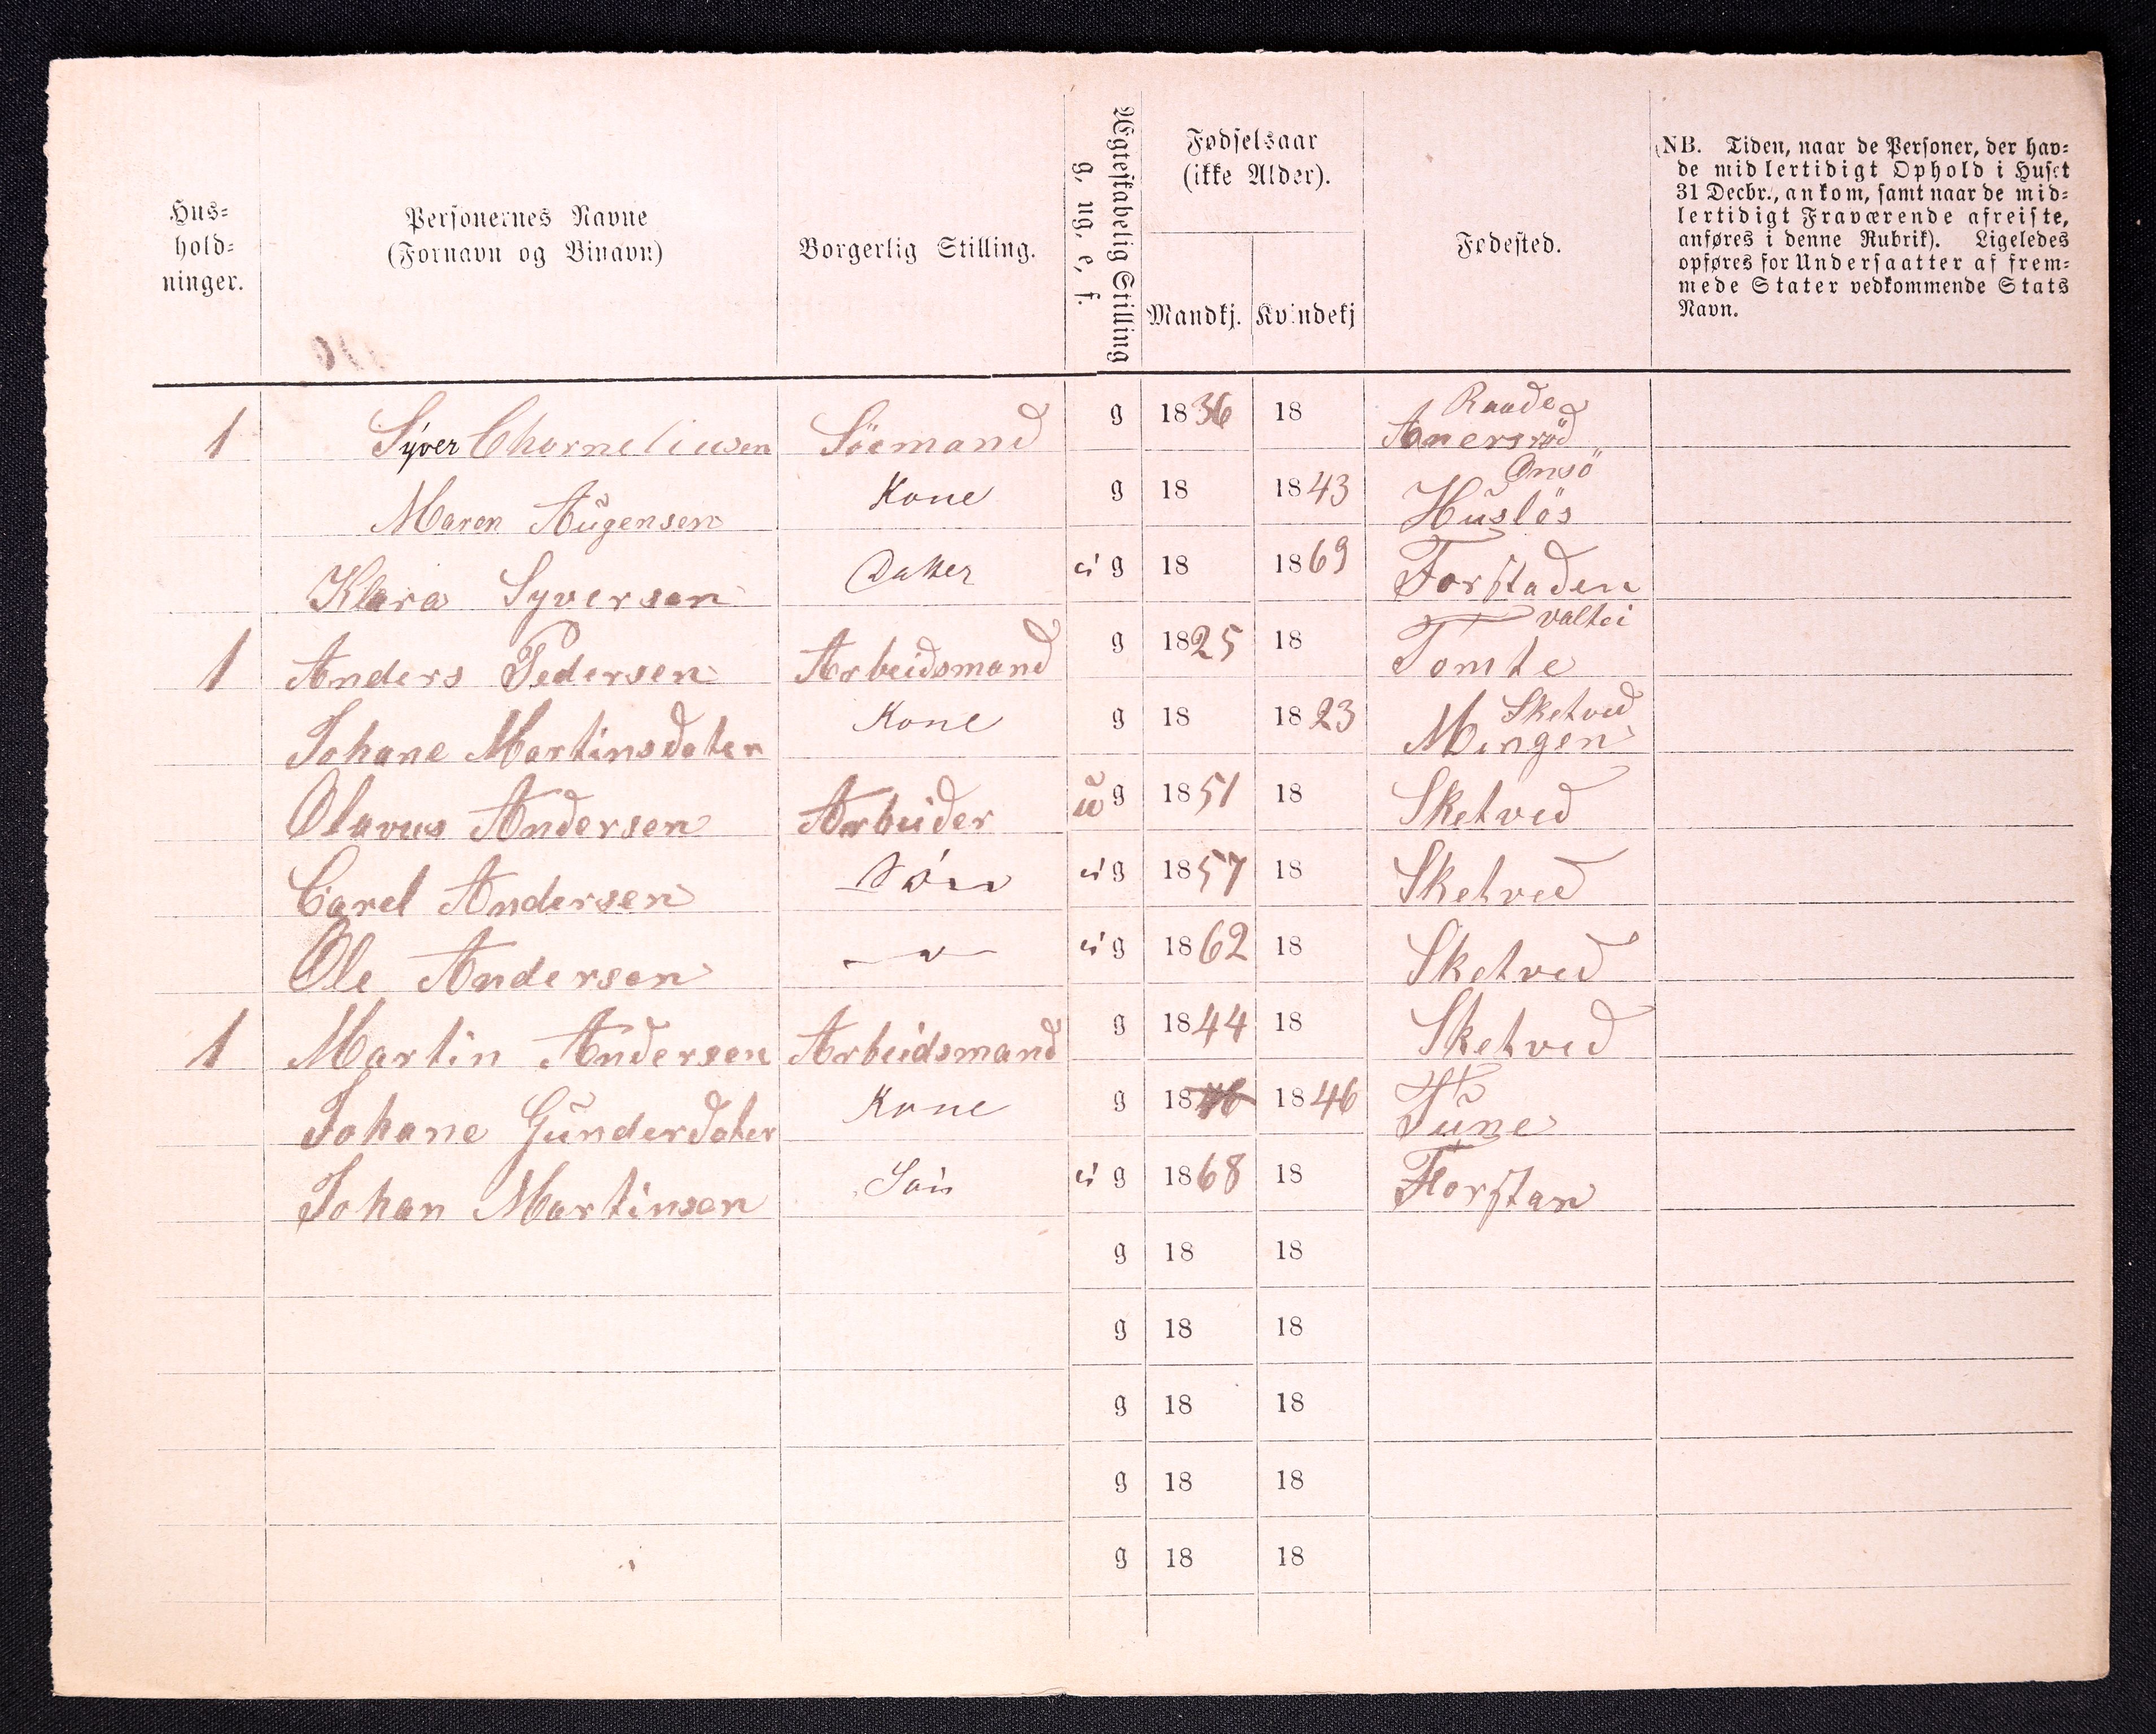 Hus-
hold-
ninger.
Personernes Navne
(Fornavn og Binavn)
Borgerlig Stilling.
Ægteskabelig Stilling
g, ug, e, f.
Fødselsaar
(ikke Alder).
Mandkj. Kvindekj
Fødested.
(NB. Tiden, naar de Personer, der hav-
de midlertidigt Ophold i Huset
31 Decbr., ankom, samt naar de mid-
lertidigt Fraværende afreiste,
anføres i denne Rubrik). Ligeledes
opføres for Undersaatter af frem-
mede Stater vedkommende Stats
Navn.
Raade
1 Syver Chorneliusen Söemand g 1836 18 Anersröd
Onsö
Maren Augensen Kone g 18 1843 Huslös
Klara Syversen Datter g 18 1869 Forstaden
1 Anders Pedersen Arbeidsmand g 1825 18 Tomte
Sketved
Johane Martinsdater Kone g 18 1823 Mingen
Olavus Andersen Arbeider u g 1851 18 Sketved
Carel Andersen Sön g 1857 18 Sketved
Ole Andersen g 1862 18 Sketved
1 Martin Andersen Arbeidsmand g 1844 18 Sketved
Johane Gunderdater Kone g 18 1846 Tune
Johan Martinsen Sön g 1868 18 Forstan
g 18 18
g 18 18
g 18 18
g 18 18
g 18 18